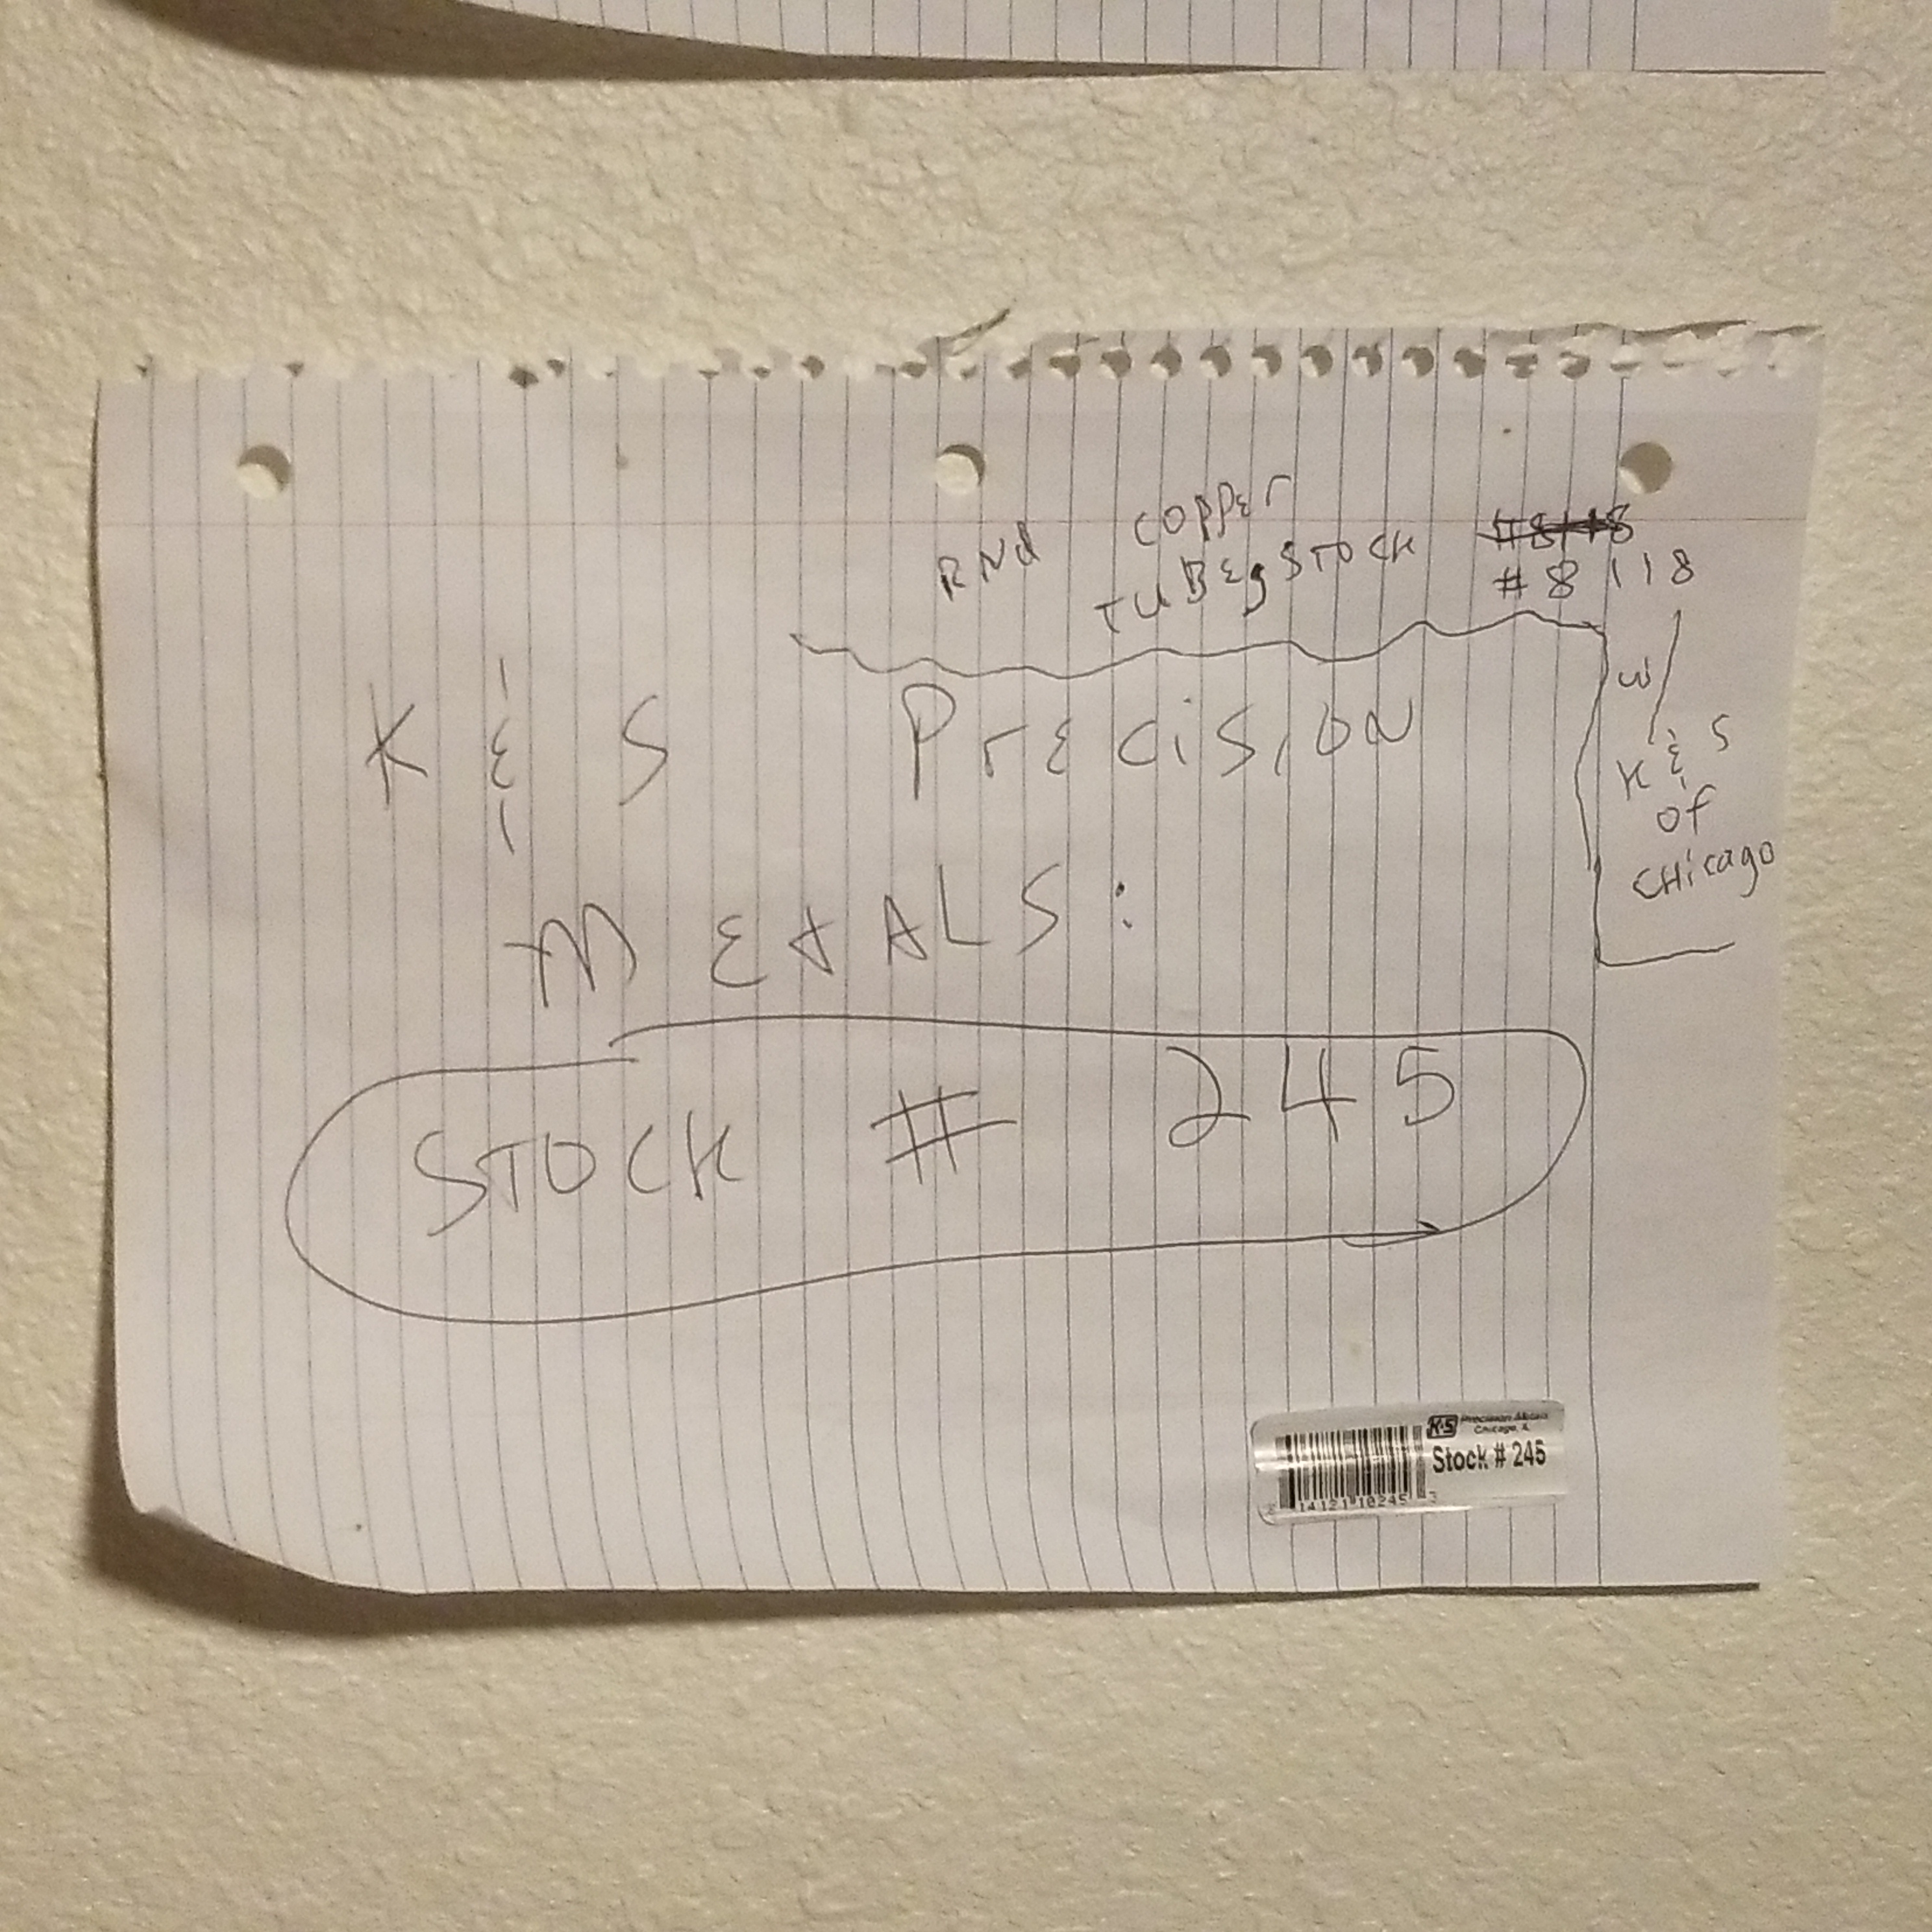 RNd COPPEr
TUBEg STOCK #8118
#8118
w/
K & S
of
CHicago
K & S PrECiSiON
METALS:
STOCK # 245
K&S Precision Metals
Chicago, IL
Stock # 245
14121 10245 3